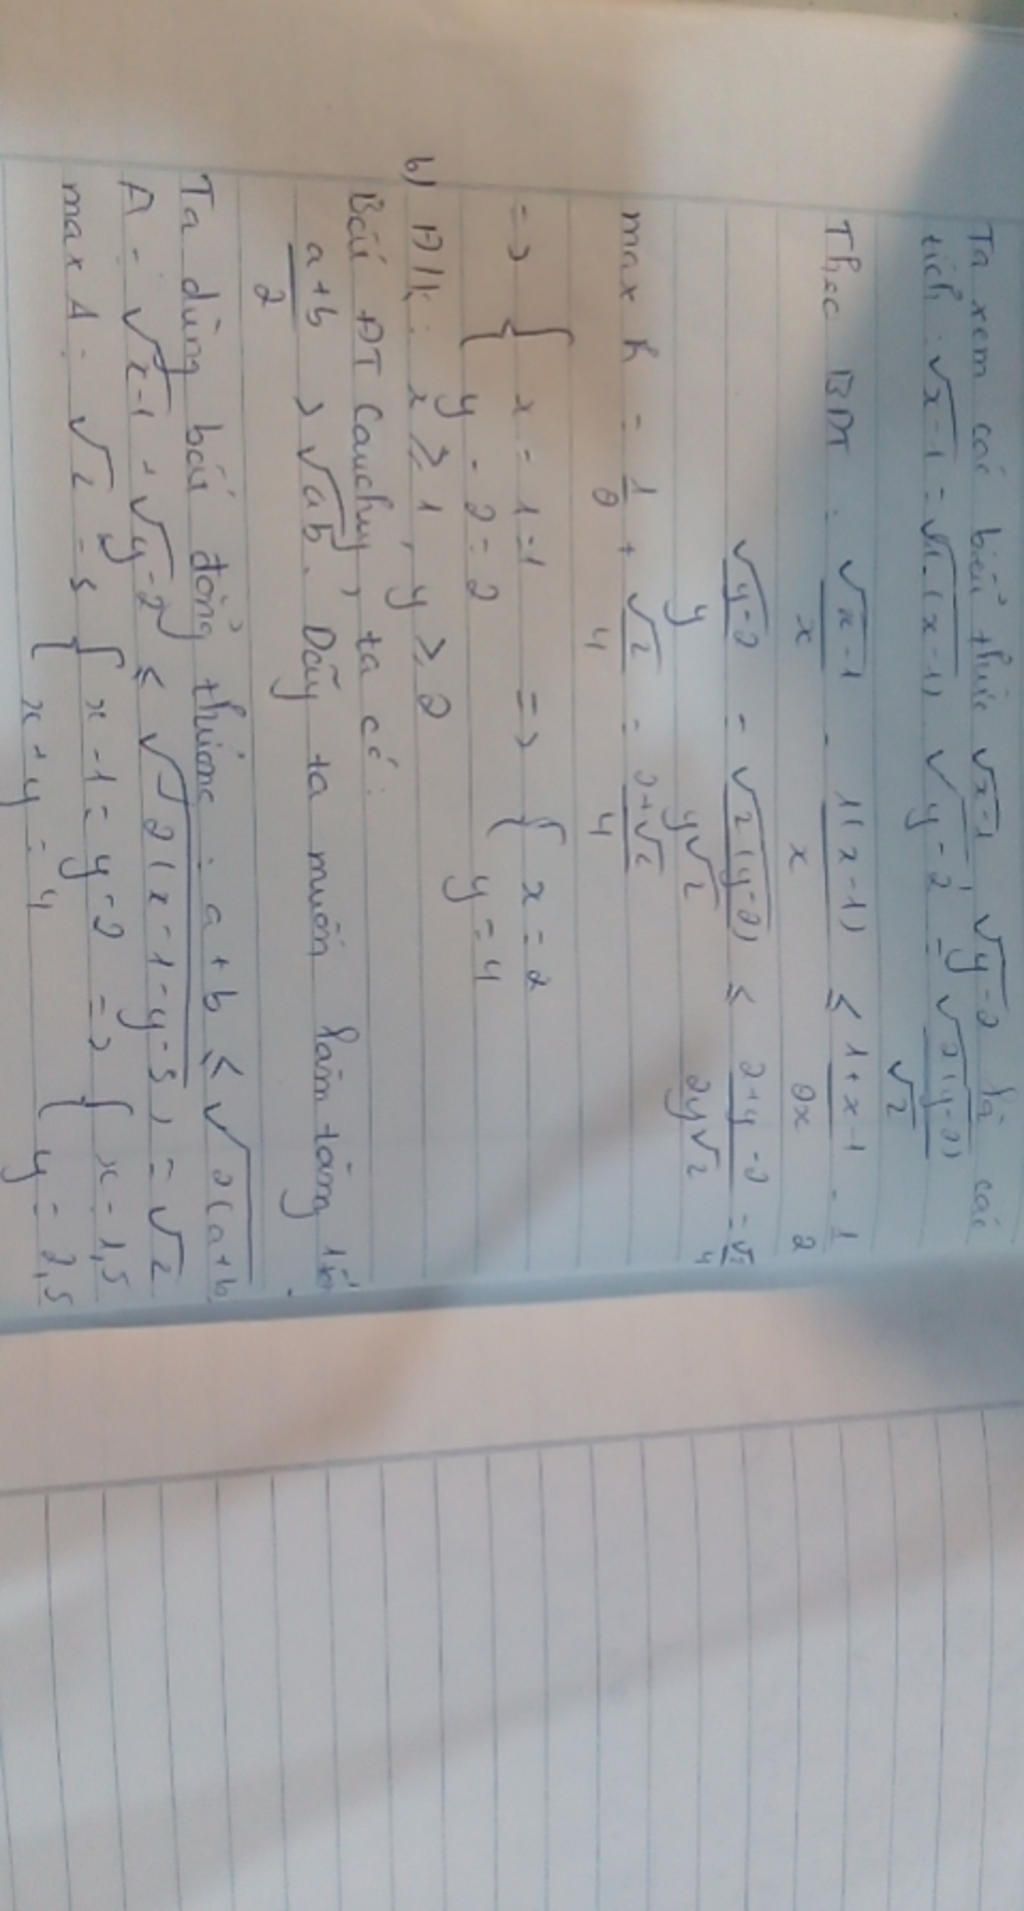 Ta xem các biểu thức √x-1, √y-2 là các
tích: √x-1 = √1.(x-1), √y-2 = √2(y-2) / √2
Theo BĐT: √x-1 / x = 1(x-1) / x ≤ 1+x-1 / 2x = 1/2
√y-2 / y = √2(y-2) / y√2 ≤ 2+y-2 / 2y√2 = √2/4
max B = 1/2 + √2/4 = 2+√2 / 4
=> { x-1=1 => { x=2
y-2=2 y=4
b) ĐK: x ≥ 1, y ≥ 2
Bất ĐT Cauchy, ta có:
a+b / 2 ≥ √ab. Dãy ta muốn làm tăng 1 số
Ta dùng bất đẳng thức: a+b ≤ √2(a+b
A = √x-1 + √y-2 ≤ √2(x-1-y-3) = √2
max A = √2 = { x-1=y-2 => { x-1,5
x+y=4 y=2,5